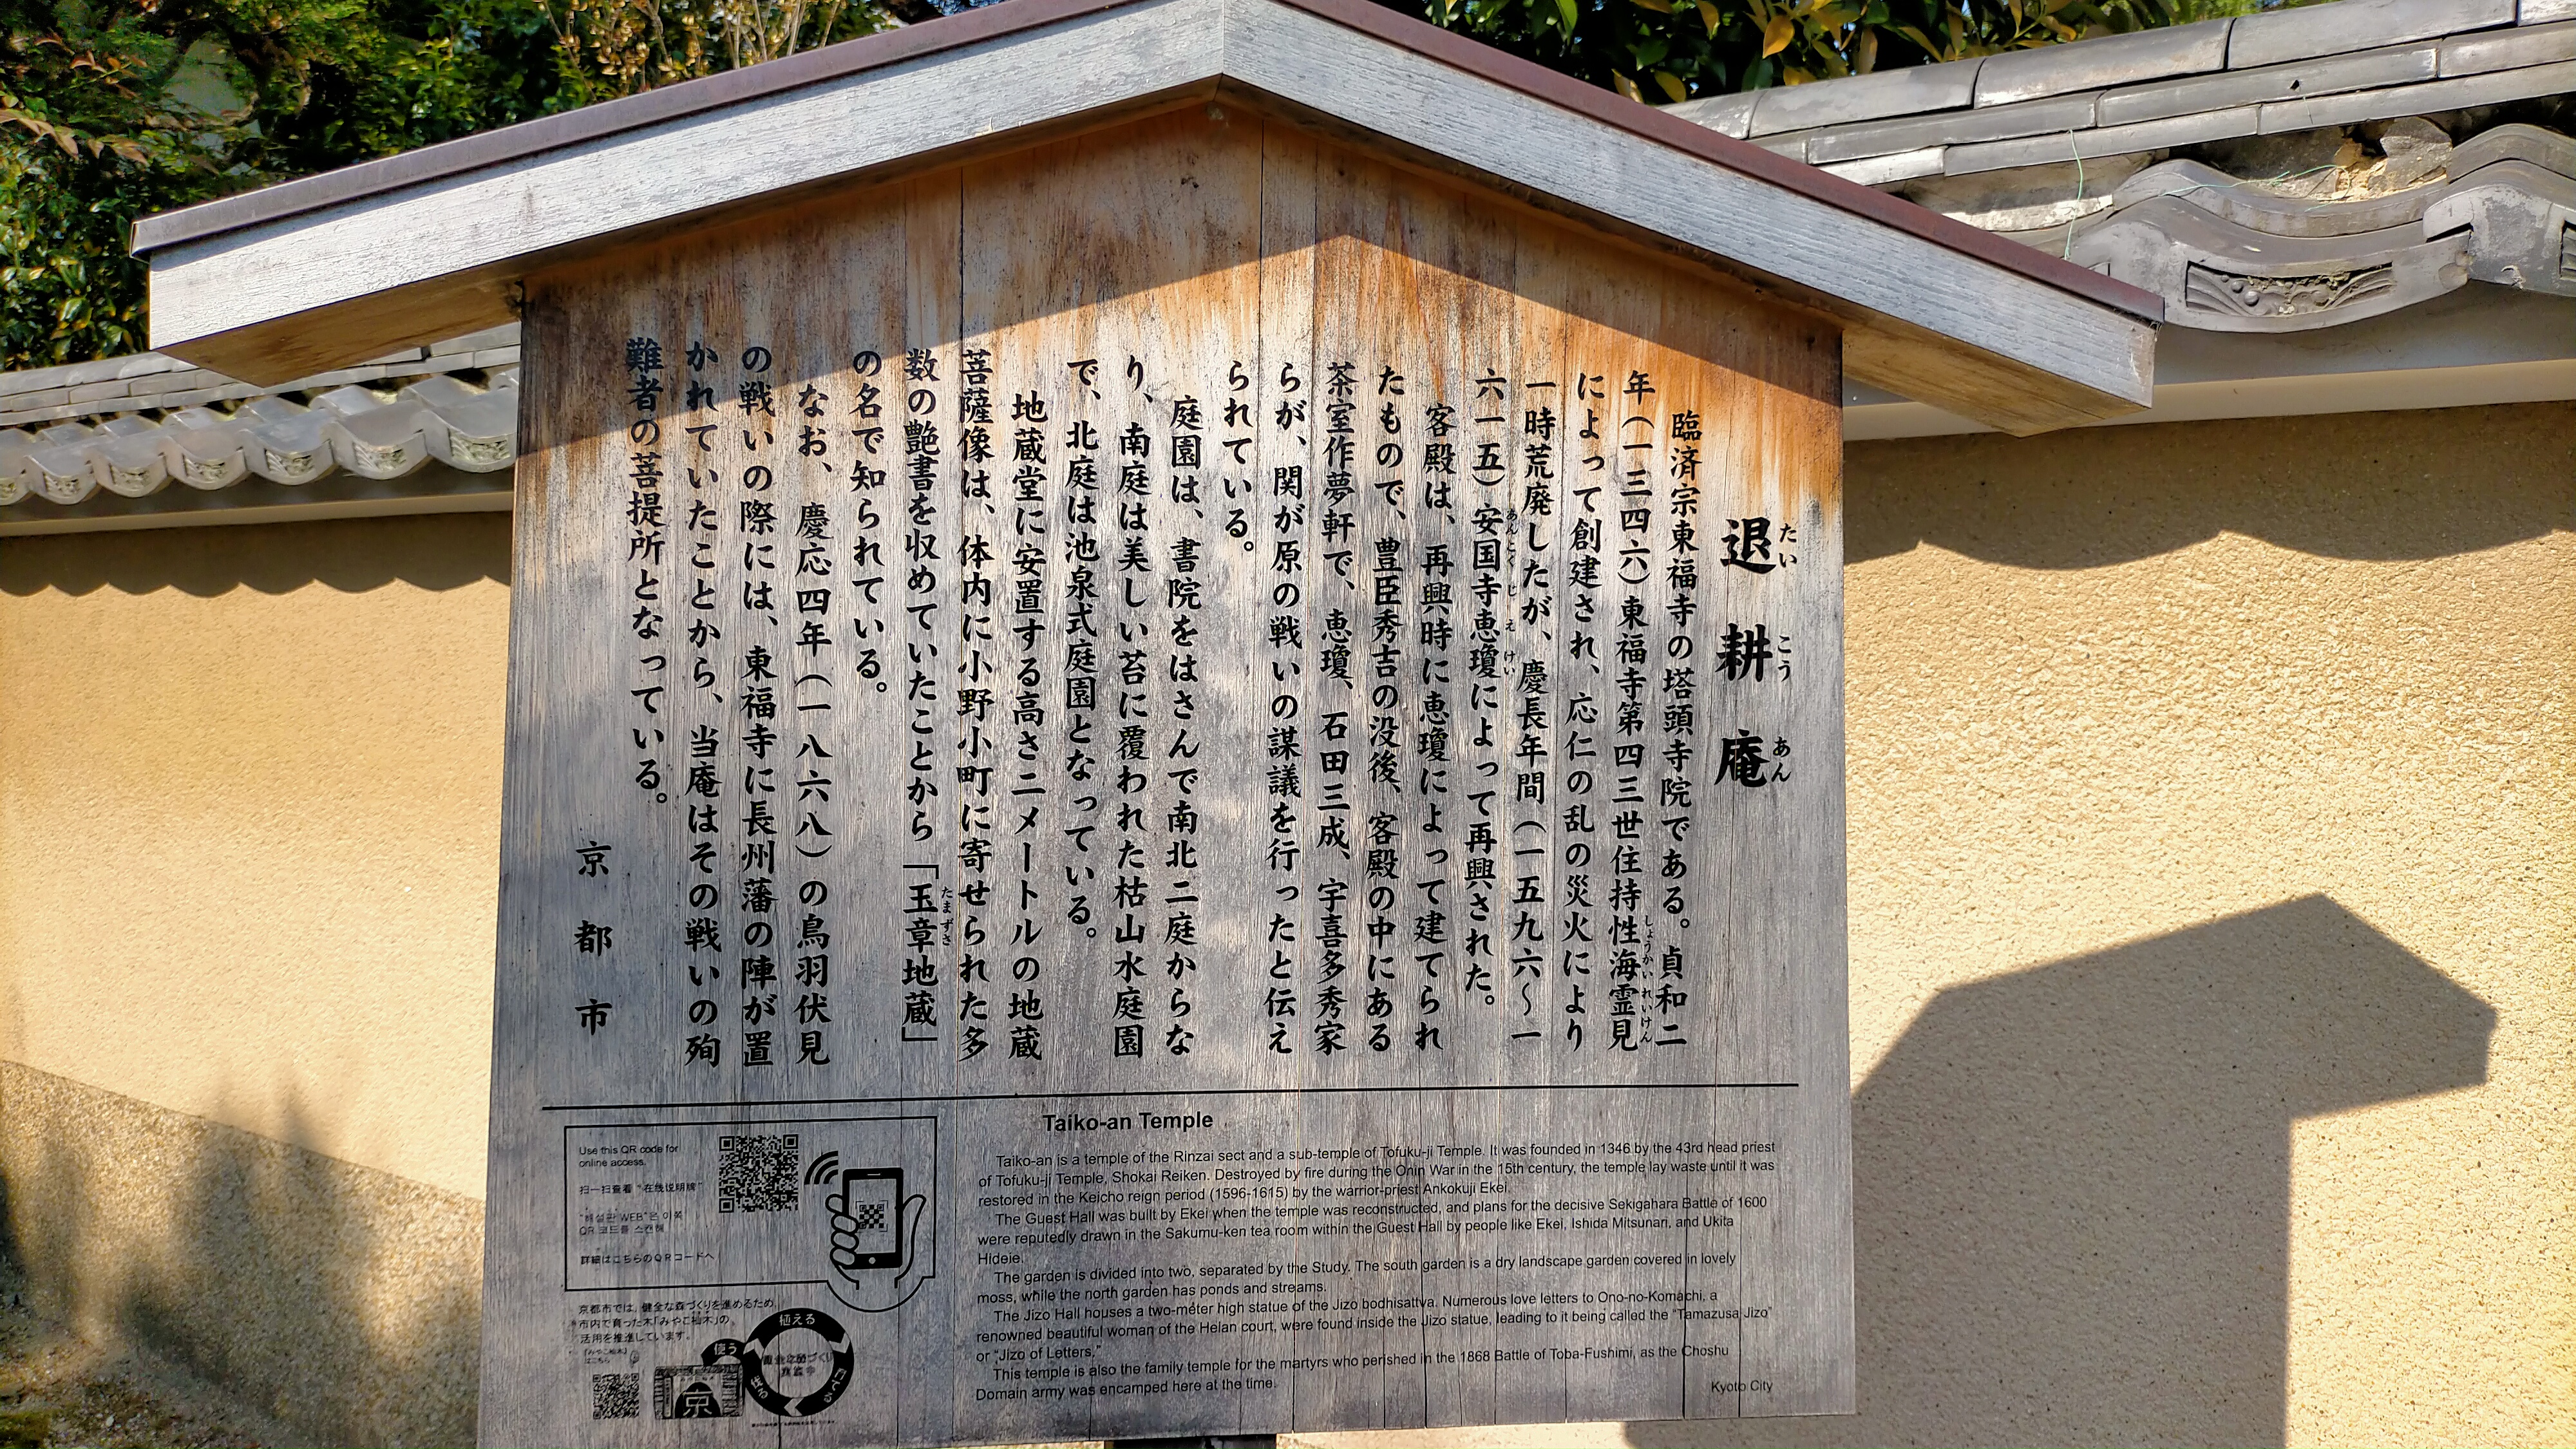 退耕庵
たい こう あん
臨済宗東福寺の塔頭寺院である。貞和二
年（一三四六）東福寺第四三世住持性海霊見
しょうかいれいけん
によって創建され、応仁の乱の災火により
一時荒廃したが、慶長年間（一五九六～一
六一五）安国寺恵瓊によって再興された。
あんこくじ え けい
客殿は、再興時に恵瓊によって建てられ
たもので、豊臣秀吉の没後、客殿の中にある
茶室作夢軒で、恵瓊、石田三成、宇喜多秀家
らが、関が原の戦いの謀議を行ったと伝え
られている。
庭園は、書院をはさんで南北二庭からな
り、南庭は美しい苔に覆われた枯山水庭園
で、北庭は池泉式庭園となっている。
地蔵堂に安置する高さ二メートルの地蔵
菩薩像は、体内に小野小町に寄せられた多
数の艶書を収めていたことから「玉章地蔵」
たまずさ
の名で知られている。
なお、慶応四年（一八六八）の鳥羽伏見
の戦いの際には、東福寺に長州藩の陣が置
かれていたことから、当庵はその戦いの殉
難者の菩提所となっている。
京都市
Taiko-an Temple
Taiko-an is a temple of the Rinzai sect and a sub-temple of Tofuku-ji Temple. It was founded in 1346 by the 43rd head priest
of Tofuku-ji Temple, Shokai Reiken. Destroyed by fire during the Onin War in the 15th century, the temple lay waste until it was
restored in the Keicho reign period (1596-1615) by the warrior-priest Ankokuji Ekei.
The Guest Hall was built by Ekei when the temple was reconstructed, and plans for the decisive Sekigahara Battle of 1600
were reputedly drawn in the Sakumu-ken tea room within the Guest Hall by people like Ekei, Ishida Mitsunari, and Ukita
Hideie.
The garden is divided into two, separated by the Study. The south garden is a dry landscape garden covered in lovely
moss, while the north garden has ponds and streams.
The Jizo Hall houses a two-meter high statue of the Jizo bodhisattva. Numerous love letters to Ono-no-Komachi, a
renowned beautiful woman of the Heian court, were found inside the Jizo statue, leading to it being called the "Tamazusa Jizo"
or "Jizo of Letters."
This temple is also the family temple for the martyrs who perished in the 1868 Battle of Toba-Fushimi, as the Choshu
Domain army was encamped here at the time.
Kyoto City
Use this QR code for
online access.
扫一扫查看 "在线说明牌"
"해설판 WEB"은 이쪽
QR 코드를 스캔해
詳細はこちらのQRコードへ
京都市では、健全な森づくりを進めるため、
市内で育った木「みやこ杣木」の
活用を推進しています。
「みやこ杣木」
はこちら
植える
使う
京